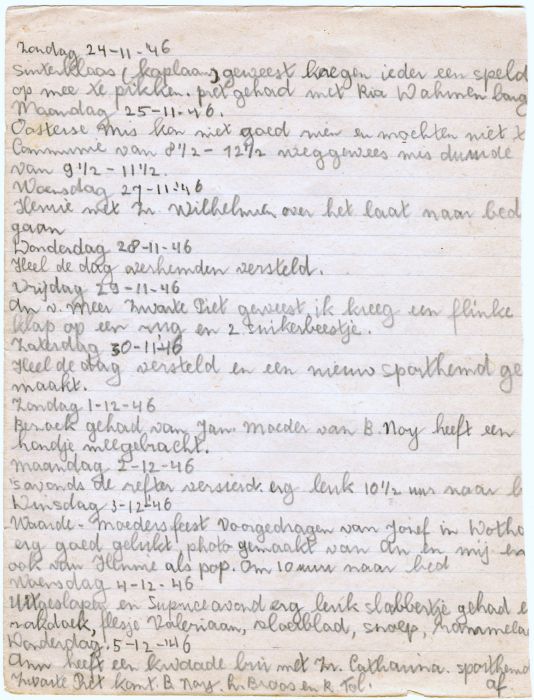 Zondag 24-11-46
Sinterklaas (kaplaan) geweest kregen ieder een speld
op mee te prikken. pret gehad met Ria Wahmen
Maandag 25-11-46.
Oosterse mis kon niet goed men en mochten niet
Communie van 8 1/2 - 12 1/2 weggewees mis duurde
van 9 1/2 - 11 1/2.
Woensdag 27-11-46
Hennie met Zr. Wilhelmien over het laat naar bed
gaan
Donderdag 28-11-46
Heel de dag overhemden versteld.
Vrijdag 29-11-46
An v. Meer Zwarte Piet geweest ik kreeg een flinke
klap op een rug en 2 suikerbeestje.
Zaterdag 30-11-46
Heel de dag versteld en een nieuw sporthemd ge
maakt.
Zondag 1-12-46
Bezoek gehad van Jan. Moeder van B. Noy heeft een
hondje meegebracht.
Maandag 2-12-46
's avonds de refter versierd. erg leuk 10 1/2 uur naar b
Dinsdag 3-12-46
Waarde - Moedersfeest Voorgedragen van Josef in
erg goed gelukt photo gemaakt van An en mij en
ook van Hennie als pop. Om 10 uur naar bed
Woensdag 4-12-46
Uitgeslapen en Surpriceavond erg leuk slabbertje gehad e
zakdoek, flesje Valeriaan, vloeiblad, snoep,
Donderdag. 5-12-46
Ann heeft een kwaade bui met Zr. Catharina. sporthemd
Zwarte Piet komt. B. Noy. Broos en R. Tol. af